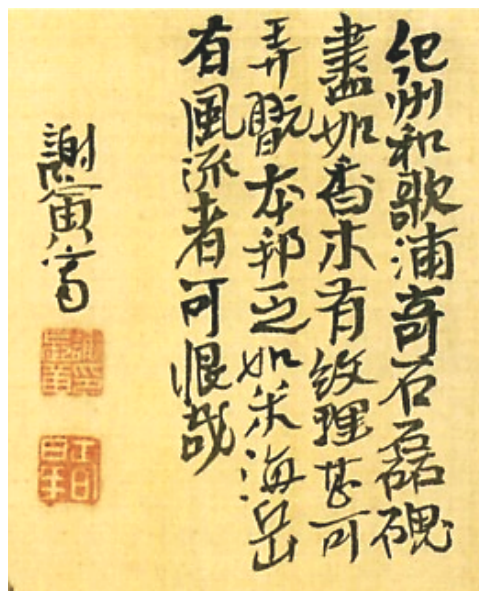 紀州和歌浦奇石磊磈
盡如香木有紋理甚可
弄翫本邦乏如米海岳
有風流者可恨哉
謝寅寫